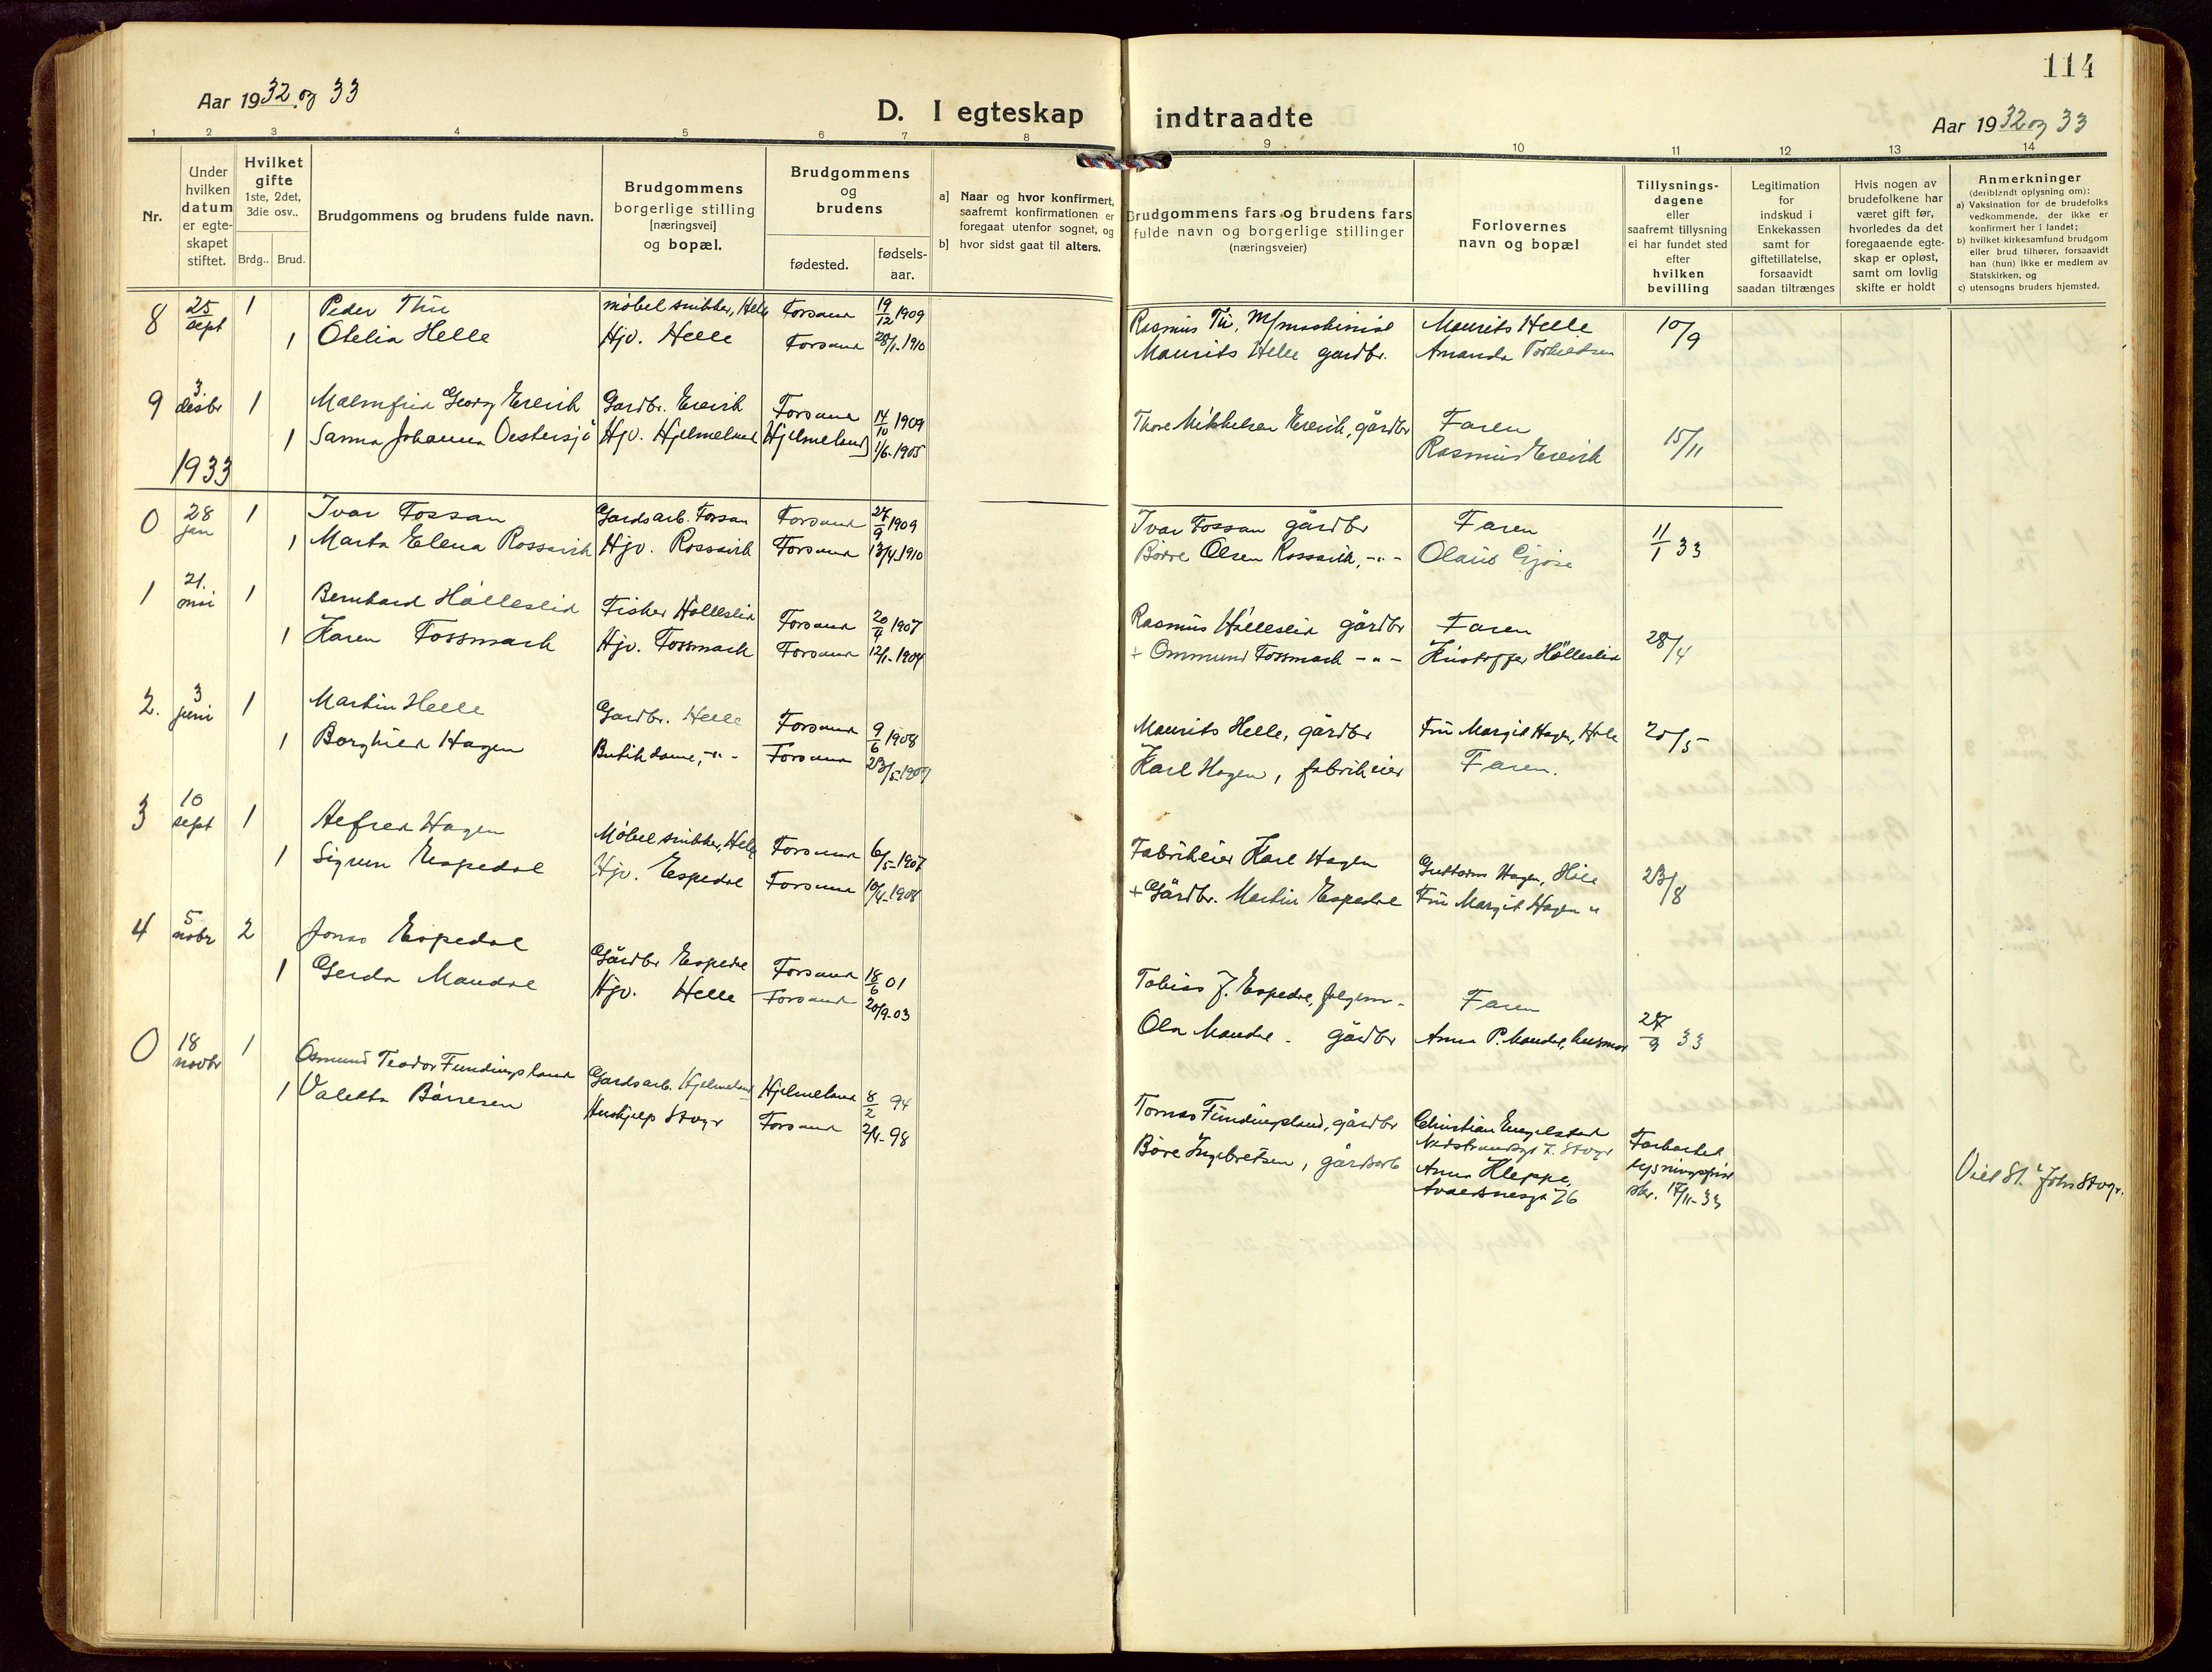 114
Aar 1932 og 33
D. I egteskap indtraadte
Aar 1932 og 33
1 2 3 4 5 6 7 8 9 10 11 12 13 14
Nr.
Under
hvilken
datum
er egte-
skapet
stiftet.
Hvilket
gifte
1ste, 2det,
3die osv..
Brdg.. Brud.
Brudgommens og brudens fulde navn.
Brudgommens
borgerlige stilling
[næringsvei]
og bopæl.
Brudgommens
og
brudens
fødested.
fødsels-
aar.
a] Naar og hvor konfirmert,
saafremt konfirmationen er
foregaat utenfor sognet, og
b] hvor sidst gaat til alters.
Brudgommens fars og brudens fars
fulde navn og borgerlige stillinger
(næringsveier)
Forlovernes
navn og bopæl
Tillysnings-
dagene
eller
saafremt tillysning
ei har fundet sted
efter
hvilken
bevilling
Legitimation
for
indskud i
Enkekassen
samt for
giftetillatelse,
forsaavidt
saadan tiltrænges
Hvis nogen av
brudefolkene har
været gift før,
hvorledes da det
foregaaende egte-
skap er opløst,
samt om lovlig
skifte er holdt
Anmerkninger
(deriblandt oplysning om):
a) Vaksination for de brudefolks
vedkommende, der ikke er
konfirmert her i landet;
b) hvilket kirkesamfund brudgom
eller brud tilhører, forsaavidt
han (hun) ikke er medlem av
Statskirken, og
c) utensogns bruders hjemsted.
8 25/sept 1 Peder Thu møbelsnikker, Helle Forsand 19/12 1909 Rasmus Tu, M/maskinist Maurits Helle 10/9
1 Otelia Helle Hjv. Helle Forsand 28/1-1910 Maurits Helle gardbr. Amanda Torkildsen
9 3. desbr 1 Malmfrid Georg Ereivik Gardbr. Ereivik Forsand 14/10 1909 Thore Mikkelsen Ereivik, gårdbr Faren 15/11
1 Sanna Johanna Oestersjö Hjv. Hjelmeland Hjelmeland 1/6-1905 Rasmus Ereivik
1933
0 28 jan 1 Ivar Fossan Gardsarb. Forsan Forsand 27/9 1909 Ivar Fossan gårdbr Faren 11/1 33
1 Marta Elena Rossavik Hjv. Rossavik Forsand 13/4 1910 Børre Olsen Rossavik, -"- Olaus Gjøse
1 21. mai 1 Bernhard Hålleslid Fisker Hålleslid Forsand 20/4 1907 Rasmus Hålleslid gårdbr Faren 28/4
1 Karen Fossmark Hjv. Fossmark Forsand 12/1-1904 + Ommund Fossmark -"- Kristoffer Hålleslid
2. 3 juni 1 Martin Helle Gardbr. Helle Forsand 9/6 1908 Maurits Helle, gårdbr Frü Margit Hagen, Hele 20/5
1 Borghild Hagen Butikdame, -"- Forsand 23/5-1909 Karl Hagen, fabrikeier Faren.
3 10 sept 1 Alfred Hagen Møbelsnikker, Helle Forsand 6/5-1907 Fabrikeier Karl Hagen Guttorm Hagen, Hele 23/8
1 Sigrun Espedal Hjv. Espedal Forsand 10/4-1908 + Gårdbr. Martin Espedal Frü Margit Hagen "
4 5 nobr 2 Jonas Espedal Gårdbr Espedal Forsand 18/6 01 Tobias J. Espedal, Faren 27/9 33
1 Gerda Maudal Hjv. Helle Forsand 20/9-03 Ola Maudal gårdbr Anna P. Maudal, husmor
0 18 novbr 1 Osmund Teodor Fundingsland Gardsarb. Hjelmeland Hjelmeland 8/2 94 Tomas Fundingsland, gårdbr Christian Engelstad
Nedstrandsgt 7. Stvgr
1 Valetta Børresen Hushjelp Stvgr Forsand 2/4-98 Børe Ingebretsen, gårdsarb Anna Kleppe,
Avaldsnesgt 76
Forkortet
lysningsfrist
skr. 17/11-33
Viet St. Johs Stvgr.